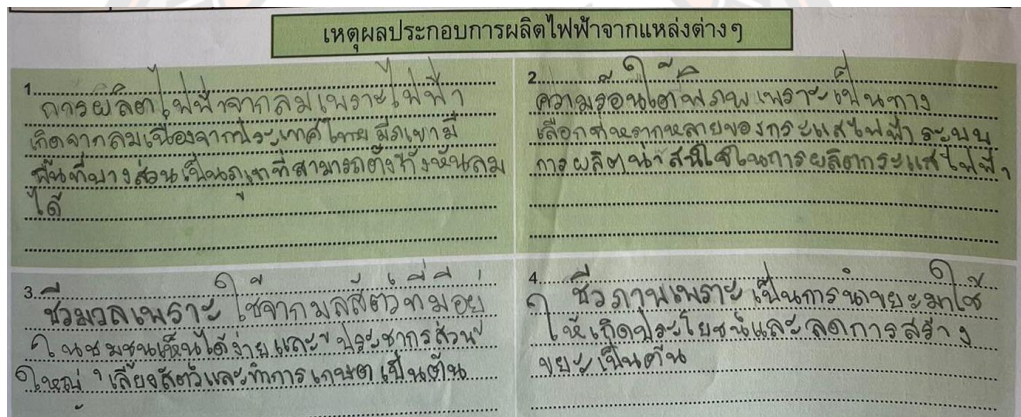 เหตุผลประกอบการผลิตไฟฟ้าจากแหล่งต่างๆ
1. การผลิตไฟฟ้าจากลมเพราะไฟฟ้า
เกิดจากลมเนื่องจากประเทศไทยมีภูเขามี
พื้นที่บางส่วนเป็นภูเขาที่สามารถตั้งกังหันลม
ได้
2. ความร้อนใต้พิภพเพราะเป็นทาง
เลือกที่หลากหลายของกระแสไฟฟ้า ระบบ
การผลิตน่าสนใจในการผลิตกระแสไฟฟ้า
3. ชีวมวลเพราะใช้จากมูลสัตว์ที่มีอยู่
ในชุมชนเห็นได้ง่ายและประชากรส่วน
ใหญ่เลี้ยงสัตว์และทำการเกษตรเป็นต้น
4. ชีวภาพเพราะเป็นการนำขยะมาใช้
ให้เกิดประโยชน์และลดการสร้าง
ขยะเป็นต้น